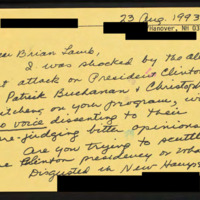 23 Aug. 1993
Hanover, NH 03
ear Brian Lamb,
I was shocked by the al
t attack on President Clinton
Patrick Buchanan & Christoph
itchens on your program, wi
o voice dissenting to their
re-judging better opinions
Are you trying to scuttl
he Clinton presidency or wha
Disgusted in New Hamps